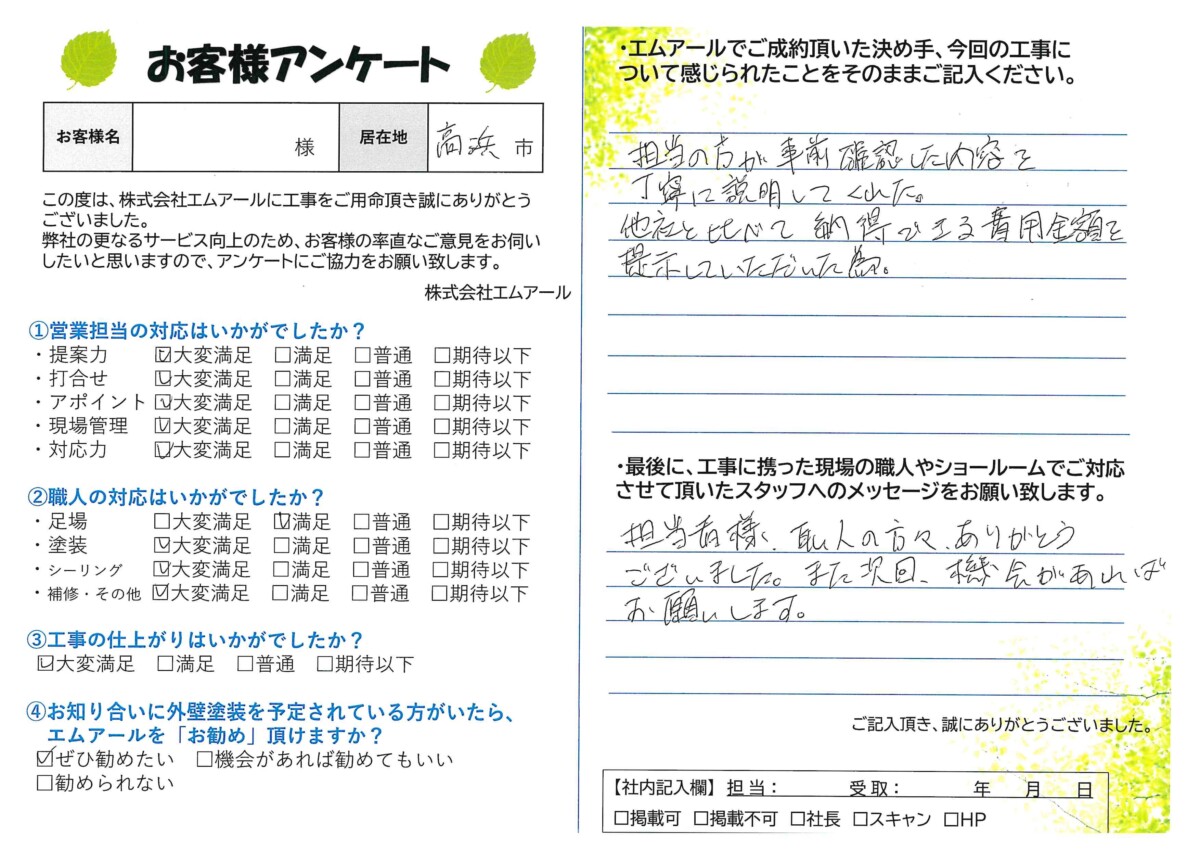 お客様アンケート
お客様名 様 居在地 高浜 市
この度は、株式会社エムアールに工事をご用命頂き誠にありがとう
ございました。
弊社の更なるサービス向上のため、お客様の率直なご意見をお伺い
したいと思いますので、アンケートにご協力をお願い致します。
株式会社エムアール
①営業担当の対応はいかがでしたか？
・提案力 ☑大変満足 □満足 □普通 □期待以下
・打合せ ☑大変満足 □満足 □普通 □期待以下
・アポイント ☑大変満足 □満足 □普通 □期待以下
・現場管理 ☑大変満足 □満足 □普通 □期待以下
・対応力 ☑大変満足 □満足 □普通 □期待以下
②職人の対応はいかがでしたか？
・足場 □大変満足 ☑満足 □普通 □期待以下
・塗装 ☑大変満足 □満足 □普通 □期待以下
・シーリング ☑大変満足 □満足 □普通 □期待以下
・補修・その他 ☑大変満足 □満足 □普通 □期待以下
③工事の仕上がりはいかがでしたか？
☑大変満足 □満足 □普通 □期待以下
④お知り合いに外壁塗装を予定されている方がいたら、
エムアールを「お勧め」頂けますか？
☑ぜひ勧めたい □機会があれば勧めてもいい
□勧められない
・エムアールでご成約頂いた決め手、今回の工事に
ついて感じられたことをそのままご記入ください。
担当の方が事前確認した内容を
丁寧に説明してくれた。
他社と比べて納得できる費用金額を
提示していただいた為。
・最後に、工事に携った現場の職人やショールームでご対応
させて頂いたスタッフへのメッセージをお願い致します。
担当者様、職人の方々、ありがとう
ございました。また次回、機会があれば
お願いします。
ご記入頂き、誠にありがとうございました。
【社内記入欄】担当： 受取： 年 月 日
□掲載可 □掲載不可 □社長 □スキャン □HP